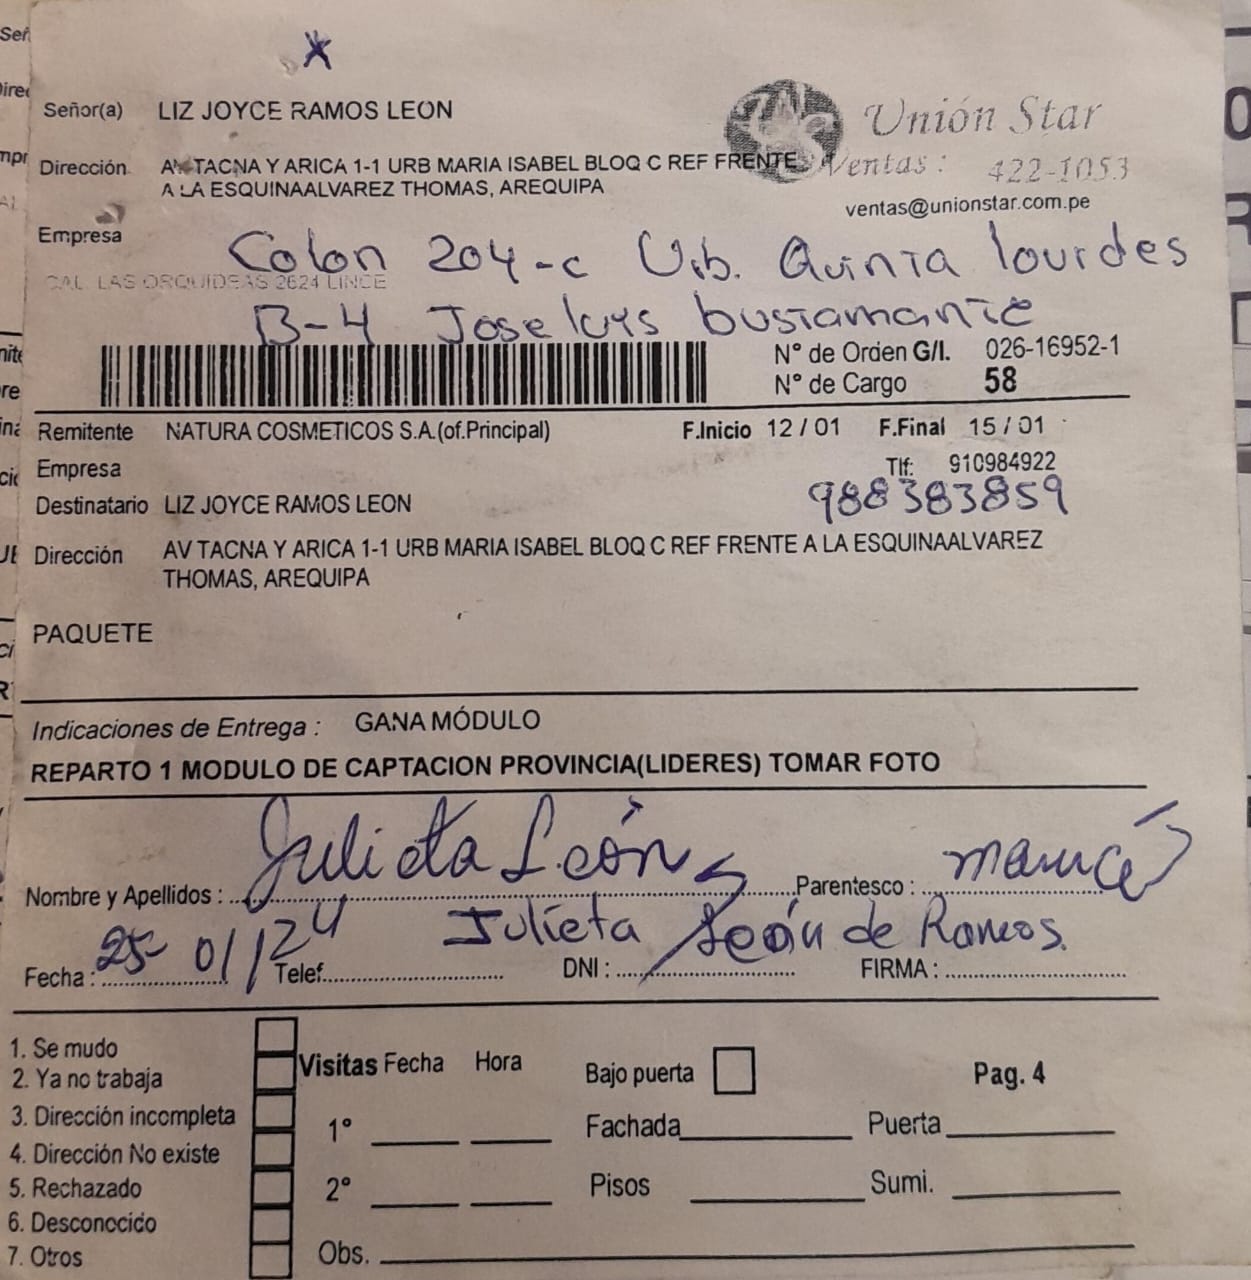 Señor(a) LIZ JOYCE RAMOS LEON
Unión Star
Dirección AV TACNA Y ARICA 1-1 URB MARIA ISABEL BLOQ C REF FRENTE
A LA ESQUINAALVAREZ THOMAS, AREQUIPA
Ventas : 422-1053
ventas@unionstar.com.pe
Empresa
Colon 204-c Urb. Quinta lourdes
CAL LAS ORQUIDEAS 2624 LINCE
B-4 Jose luys bustamante
N° de Orden G/I. 026-16952-1
N° de Cargo 58
Remitente NATURA COSMETICOS S.A.(of.Principal) F.Inicio 12 / 01 F.Final 15 / 01
Empresa Tlf: 910984922
988383859
Destinatario LIZ JOYCE RAMOS LEON
Dirección AV TACNA Y ARICA 1-1 URB MARIA ISABEL BLOQ C REF FRENTE A LA ESQUINAALVAREZ
THOMAS, AREQUIPA
PAQUETE
Indicaciones de Entrega : GANA MÓDULO
REPARTO 1 MODULO DE CAPTACION PROVINCIA(LIDERES) TOMAR FOTO
Nombre y Apellidos : Julieta León Parentesco :
Julieta León de Ramos.
Fecha : 25-01/24 Telef. DNI : FIRMA :
1. Se mudo
2. Ya no trabaja
3. Dirección incompleta
4. Dirección No existe
5. Rechazado
6. Desconocido
7. Otros
Visitas Fecha Hora
1°
2°
Obs.
Bajo puerta Pag. 4
Fachada Puerta
Pisos Sumi.